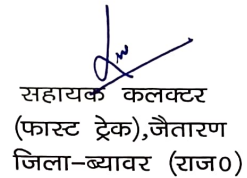 सहायक कलक्टर
(फास्ट ट्रेक),जैतारण
जिला–ब्यावर (राज०)